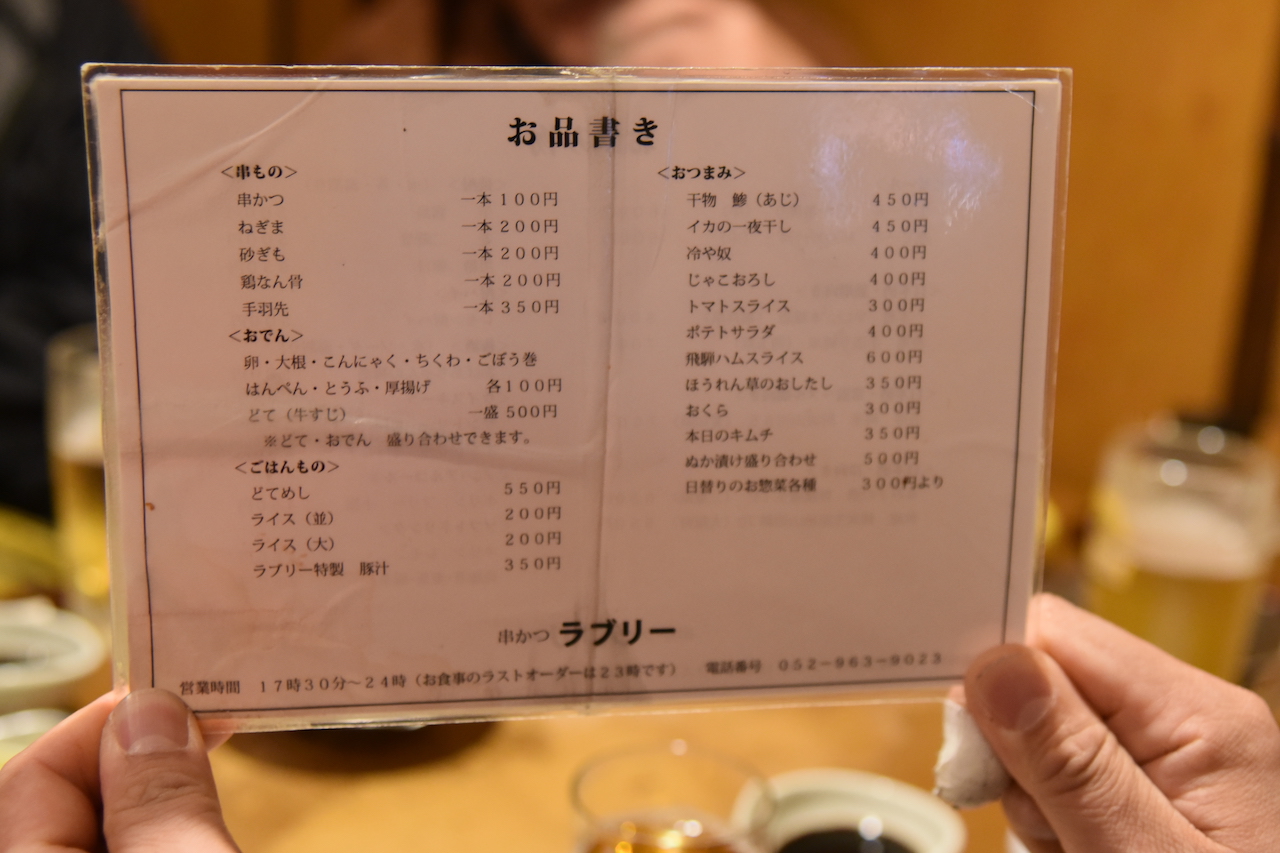 お品書き
＜串もの＞
串かつ 一本１００円
ねぎま 一本２００円
砂ぎも 一本２００円
鶏なん骨 一本２００円
手羽先 一本３５０円
＜おでん＞
卵・大根・こんにゃく・ちくわ・ごぼう巻
はんぺん・とうふ・厚揚げ 各１００円
どて（牛すじ） 一盛５００円
※どて・おでん　盛り合わせできます。
＜ごはんもの＞
どてめし ５５０円
ライス（並） ２００円
ライス（大） ２００円
ラブリー特製　豚汁 ３５０円
＜おつまみ＞
干物　鯵（あじ） ４５０円
イカの一夜干し ４５０円
冷や奴 ４００円
じゃこおろし ４００円
トマトスライス ３００円
ポテトサラダ ４００円
飛騨ハムスライス ６００円
ほうれん草のおしたし ３５０円
おくら ３００円
本日のキムチ ３５０円
ぬか漬け盛り合わせ ５００円
日替りのお惣菜各種 ３００円より
串かつ ラブリー
営業時間　１７時３０分～２４時（お食事のラストオーダーは２３時です）　電話番号　０５２－９６３－９０２３